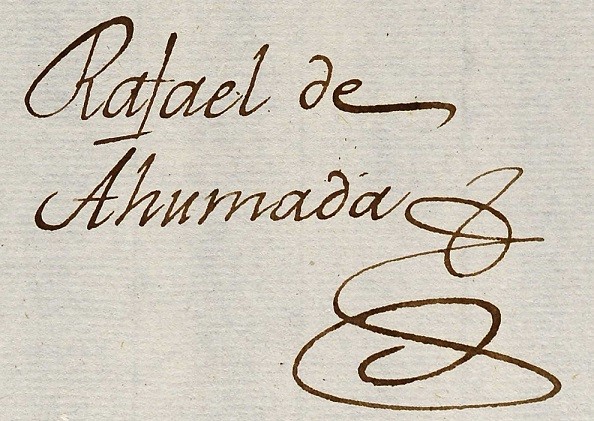 Rafael de
Ahumada